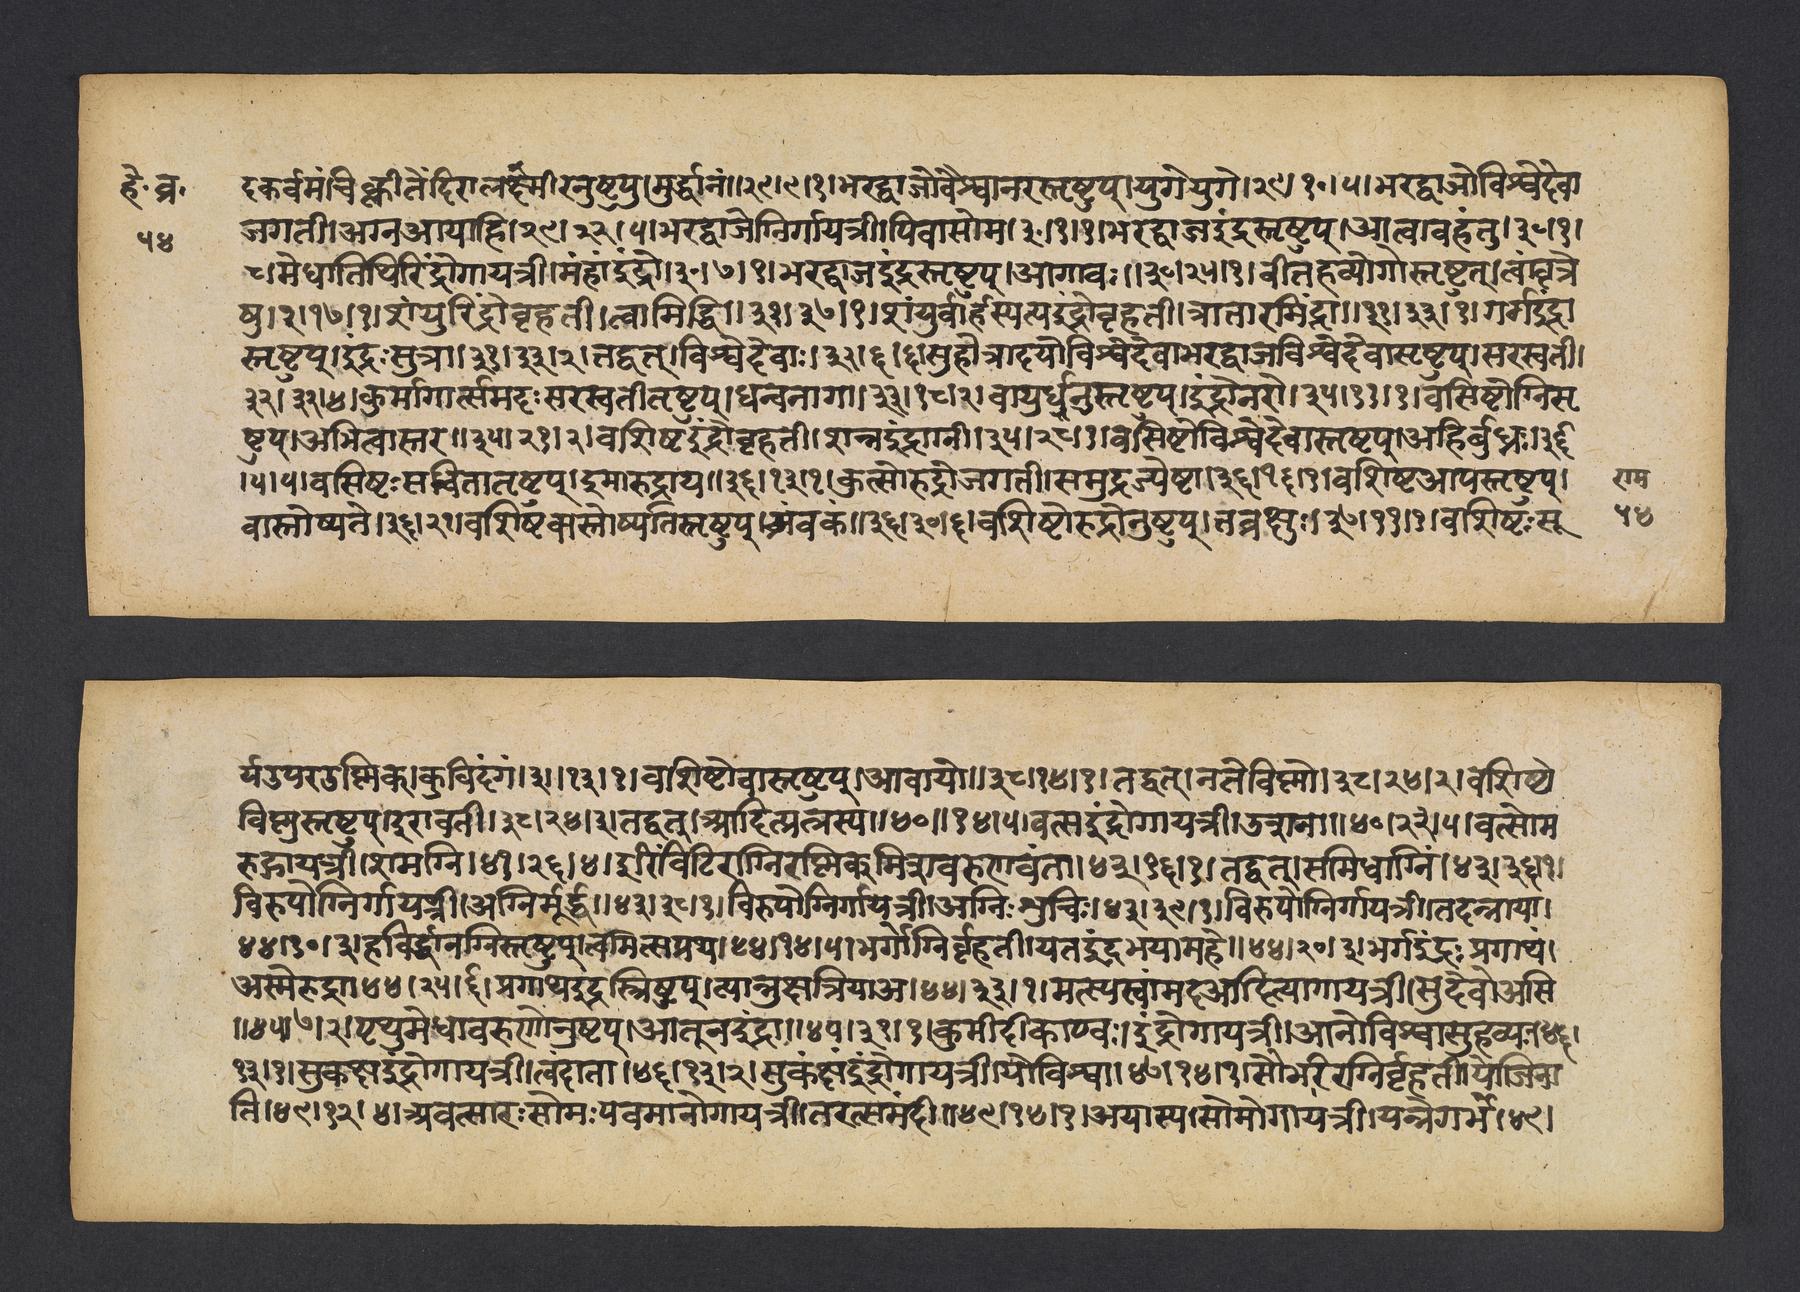 है॰ व्र॰
५४
दकर्वमंचिक्लीतेंदिरालक्ष्मीरनुष्टुप्।मुर्द्धानं॥२९।९।१।भरद्वाजोवैश्वानरस्तृष्टुप्।युगेयुगे।२९।१०।५।भरद्वाजोविश्वेदेवा
जगती।अग्नआयाहि।२९।२२।५।भरद्वाजोग्निर्गायत्री।पिबासोम।३०।१।१।भरद्वाजइंद्रस्तृष्टुप्।आत्वावहंतु।३०।१।
८।मेधातिथिरिंद्रोगायत्री।मंहांइंद्रो।३०।७।१।भरद्वाजइंद्रस्तृष्टुप्।आगावः॥३०।२५।१।वीतहव्योगोस्तृष्टुत्।त्वंह्यत्रे
षु।२।१७।१।शंयुरिंद्रोबृहती।त्वामिद्धि॥३१।३७।१।शंयुर्वार्हस्पत्यइंद्रोबृहती।त्रातारमिंद्रा॥३१।३३।१।गर्गइंद्रा
स्तृष्टुप्।इंद्रःसुत्रा।३१।३३।२।तद्वत्।विश्वेदेवाः।३२।६।६।सुहोत्रादयोविश्वेदेवाभरद्वाजविश्वेदेवास्टष्टुप्।सरस्वती।
३२।३३।४।कुर्मागार्त्समदःसरस्वतीतृष्टुप्।धन्वनागा।३३।१८।२।वायुर्धनुस्तृष्टुप्।इंद्रोनरो।३५।११।१।वसिष्टोग्निस्
ष्टुप्।अभित्वास्तर॥३५।२१।२।वशिष्टइंद्रोबृहती।शन्नइंद्राग्नी।३५।२८।१।वसिष्टोविश्वेदेवास्तृष्टुप्।अहिर्बुध्नः।३६
।५।५।वसिष्टःसवितातृष्टुप्।इमारुद्राय॥३६।१३।१।कुत्सोरुद्रोजगती।समुद्रज्येष्टा।३६।१६।१।वशिष्टआपस्तृष्टुप्।
वास्तोष्पते।३६।२१।वशिष्टवास्तोष्पतिस्तृष्टुप्।त्र्यंबकं॥३६।३०।६।वशिष्टोरुद्रोनुष्टुप्।तच्चक्षुः।३७।११।१।वशिष्टःसू
राम
५४
र्यउपरउष्णिक्।कुविदंग।३।।१३।१।वशिष्टोवास्तृष्टुप्।आवायो॥३८।१४।१।तद्वत्।नतेविष्णो।३८।२४।२।वशिष्टो
विष्णुस्तृष्टुप्।इरावती।३८।२४।३।तद्वत्।आदित्प्रत्नस्य॥४०॥१४।५।वत्सइंद्रोगायत्री।उत्राना॥४०।२२।५।वत्सोम
रुद्गायत्री।शमग्नि।४१।२६।४।इरिंविटिरग्निरष्णिक्।मित्रावरुणवंता।४३।१६।१।तद्वत्।समिधाग्निं।४३।३६।१।
विरुपोग्निर्गायत्री।अग्निर्मूर्द्ध॥४३।३८।१।विरुपोग्निर्गायत्री।अग्निःशुचिः।४३।३९।१।विरुपोग्निर्गायत्री।तदन्नाया।
४४।१०।३।हविर्द्धानग्निस्तृष्टुप्।त्वमित्सप्रथ।४४।१४।५।भर्गोग्निर्बृहती।यतइंद्रभयामहे॥४४।२०।३।भर्गइंद्रःप्रगाथं।
अस्मेरुद्रा।४४।२५।६।प्रगाथइद्रस्त्रिष्टुप्।त्यान्नुक्षत्रियाअ।४४।३३।१।मत्स्यस्वांमदआदित्यागायत्री।सुदेवोअसि
॥४५।७।२।पृथुमेधावरुणोनुष्टुप्।आतूनइंद्रा॥४५।३१।१।कुमीदीकाण्वः।इंद्रोगायत्री।आनोविश्वासुहव्यः।४६।
१३।१।सुकक्षइंद्रोगायत्री।त्वंदाता।४६।१३।२।सुकक्षइंद्रोगायत्री।योविश्वा।४७।१४।१।सोभरिरग्निर्बृहती।योजिना
ति।४९।१२।४।अवत्सारःसोमःपवमानोगायत्री।तरत्समंदी॥४९।१५।१।अयास्य।सोमोगायत्री।यन्नेगर्भे।४९।